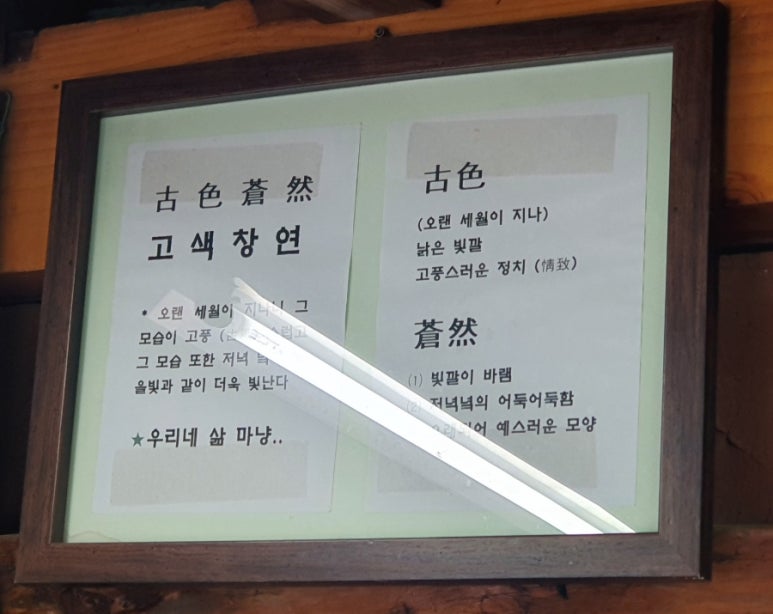 古色蒼然
고색창연
* 오랜 세월이 지나니 그
모습이 고풍 (古 스럽고
그 모습 또한 저녁
을빛과 같이 더욱 빛난다
★우리네 삶 마냥..
古色
(오랜 세월이 지나)
낡은 빛깔
고풍스러운 정치 (情致)
蒼然
(1) 빛깔이 바램
(2) 저녁녘의 어둑어둑함
오래되어 예스러운 모양